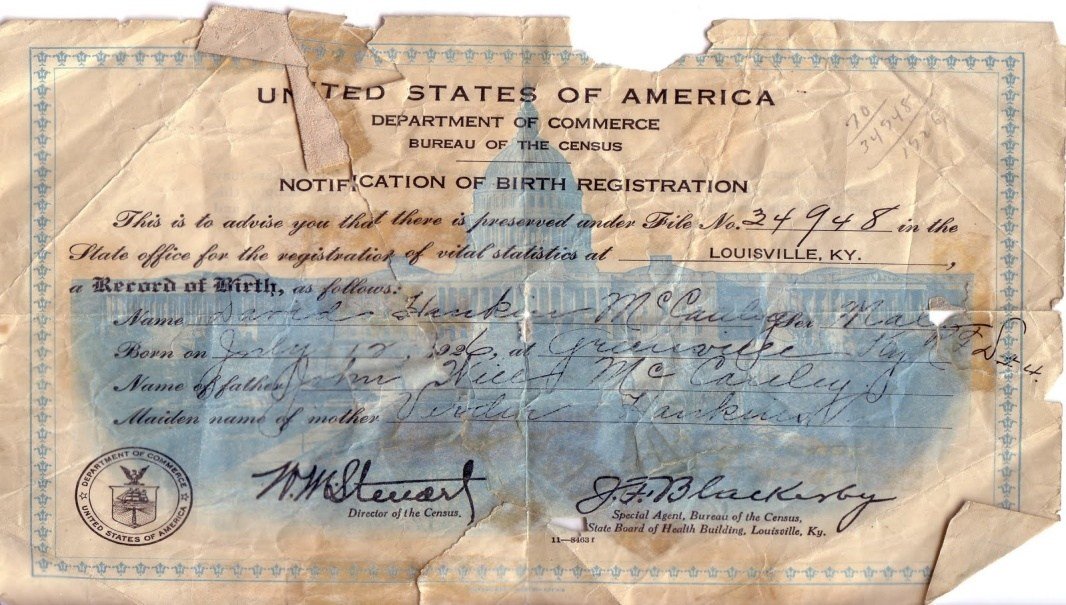 UNITED STATES OF AMERICA
DEPARTMENT OF COMMERCE
BUREAU OF THE CENSUS
70/
34948/
1926
NOTIFICATION OF BIRTH REGISTRATION
This is to advise you that there is preserved under File No. 34948 in the
State office for the registration of vital statistics at LOUISVILLE, KY.,
a Record of Birth, as follows:
Name David Hankins McCauley Sex Male
Born on July 12, 1926, at Greenville Ky
Name of father John McCauley
Maiden name of mother Hankins
DEPARTMENT OF COMMERCE
UNITED STATES OF AMERICA
W. M. Steuart
Director of the Census.
J. F. Blackerby
Special Agent, Bureau of the Census,
State Board of Health Building, Louisville, Ky.
11—8463